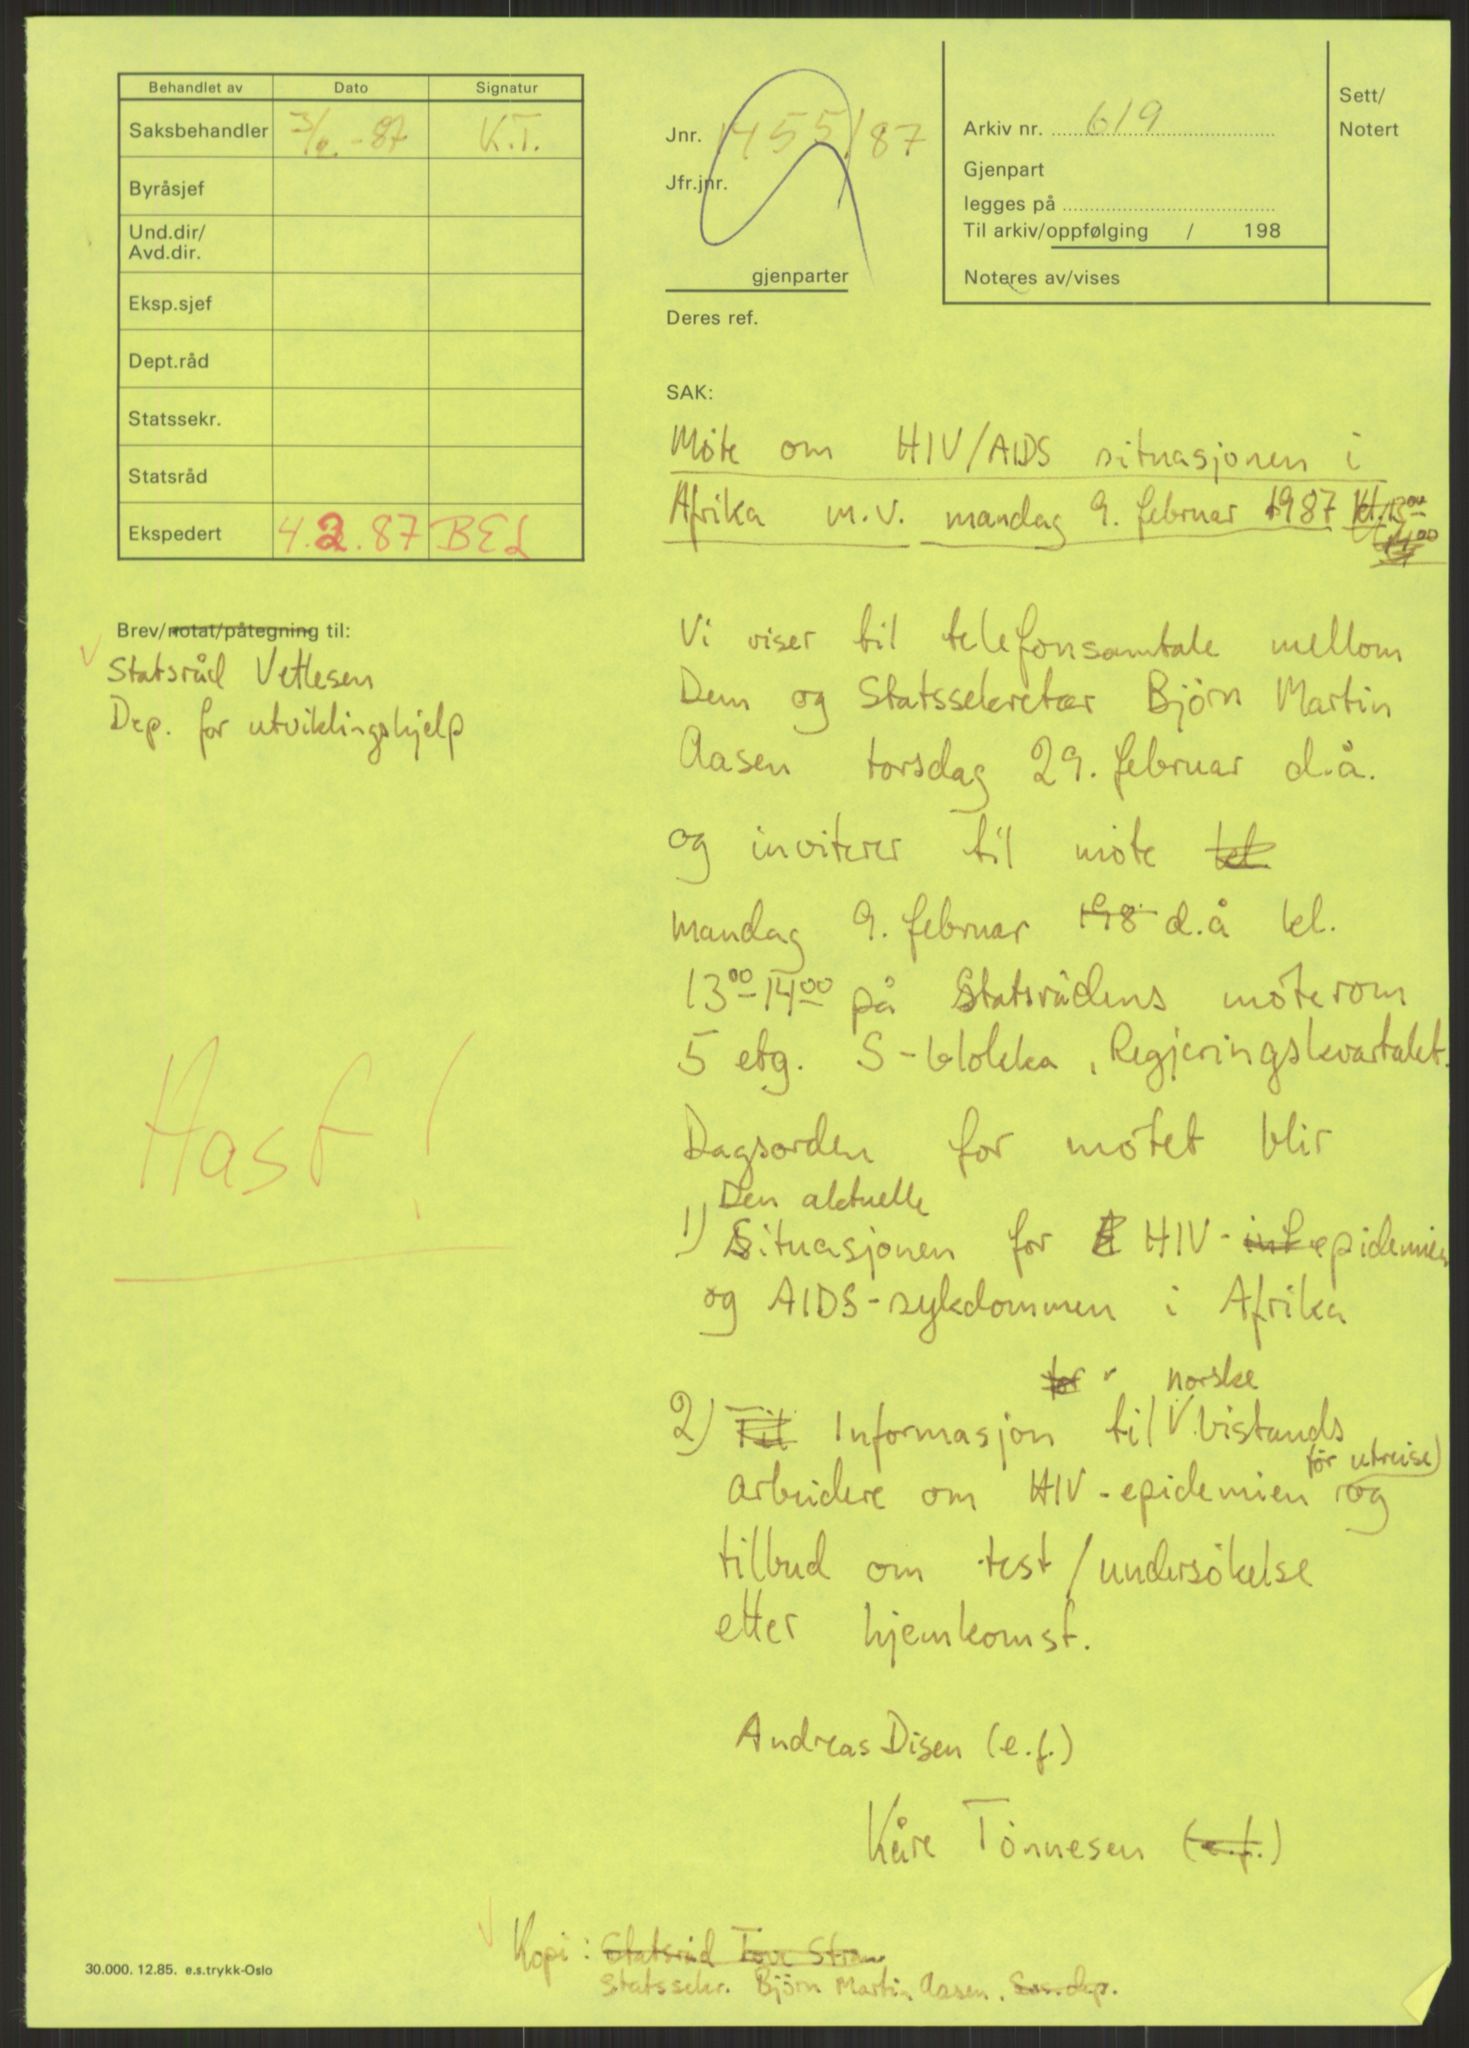 Behandlet av Dato Signatur
Saksbehandler 3/2-87 K.T.
Byråsjef
Und.dir/
Avd.dir.
Eksp.sjef
Dept.råd
Statssekr.
Statsråd
Ekspedert 4.2.87 BEL
Jnr. 1455/87
Jfr.jnr.
gjenparter
Deres ref.
Arkiv nr. 619
Gjenpart
legges på
Til arkiv/oppfølging / 198
Noteres av/vises
Sett/
Notert
SAK:
Møte om HIV/AIDS situasjonen i
Afrika m.v. mandag 9. februar 1987 kl. 13 00
14 00
Brev/notat/påtegning til:
Statsråd Vetlesen
Dep. for utviklingshjelp
Vi viser til telefonsamtale mellom
Dem og Statssekretær Bjørn Martin
Aasen torsdag 29. februar d.å.
og inviterer til møte
mandag 9. februar 198 d.å kl.
13 00 - 14 00 på Statsrådens møterom
5 etg. S-blokka, Regjeringskvartalet.
Hast!
Dagsorden for møtet blir
Den aktuelle
1) Situasjonen for HIV-inf epidemien
og AIDS-sykdommen i Afrika
for norske
2) Til Informasjon til V bistands
før utreise)
arbeidere om HIV-epidemien og
tilbud om test/undersøkelse
etter hjemkomst.
Andreas Disen (e.f.)
Kåre Tønnesen (e.f.)
Kopi: Statsråd Tove Stran
Statssekr. Bjørn Martin Aasen, Sos.dep.
30.000. 12.85. e.s.trykk-Oslo